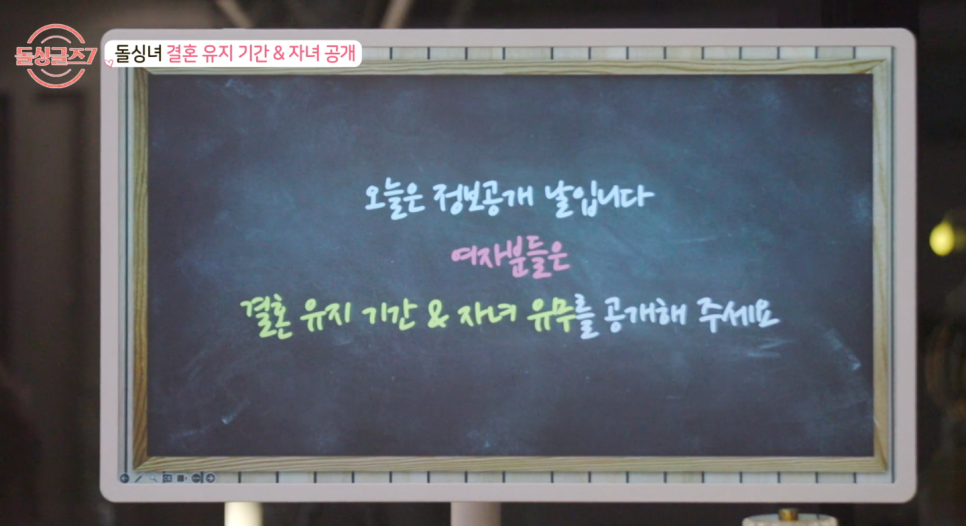 돌싱글즈7
돌싱녀 결혼 유지 기간 & 자녀 공개
오늘은 정보공개 날입니다
여자분들은
결혼 유지 기간 & 자녀 유무를 공개해 주세요